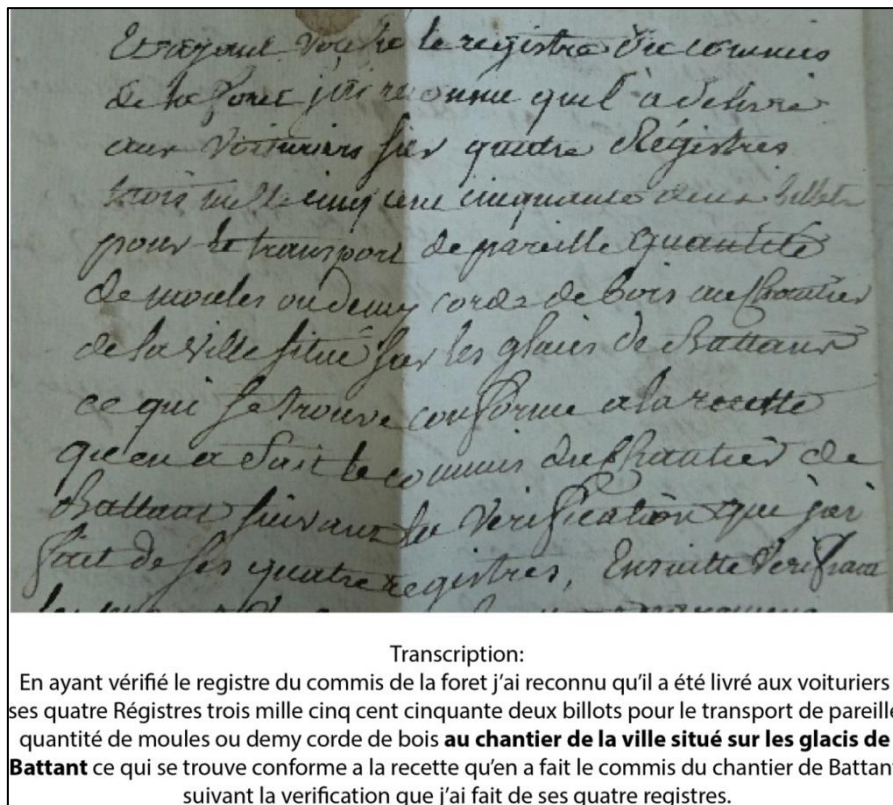 Et ayant vérifié le registre du commis
de la foret j'ai reconnu quil a delivré
aux voituriers sur quatre Régistres
trois mille cinq cent cinquante deux billets
pour le transport de pareille quantité
de moules ou demy corde de bois au chantier
de la ville situé sur les glacis de Battant
ce qui se trouve conforme a la recette
qu'en a fait le commis du chantier de
Battant suivant la verification que j'ai
fait de ses quatre registres, Ensuitte verifiant
Transcription:
En ayant vérifié le registre du commis de la foret j'ai reconnu qu'il a été livré aux voituriers
ses quatre Régistres trois mille cinq cent cinquante deux billots pour le transport de pareille
quantité de moules ou demy corde de bois au chantier de la ville situé sur les glacis de
Battant ce qui se trouve conforme a la recette qu'en a fait le commis du chantier de Battant
suivant la verification que j'ai fait de ses quatre registres.